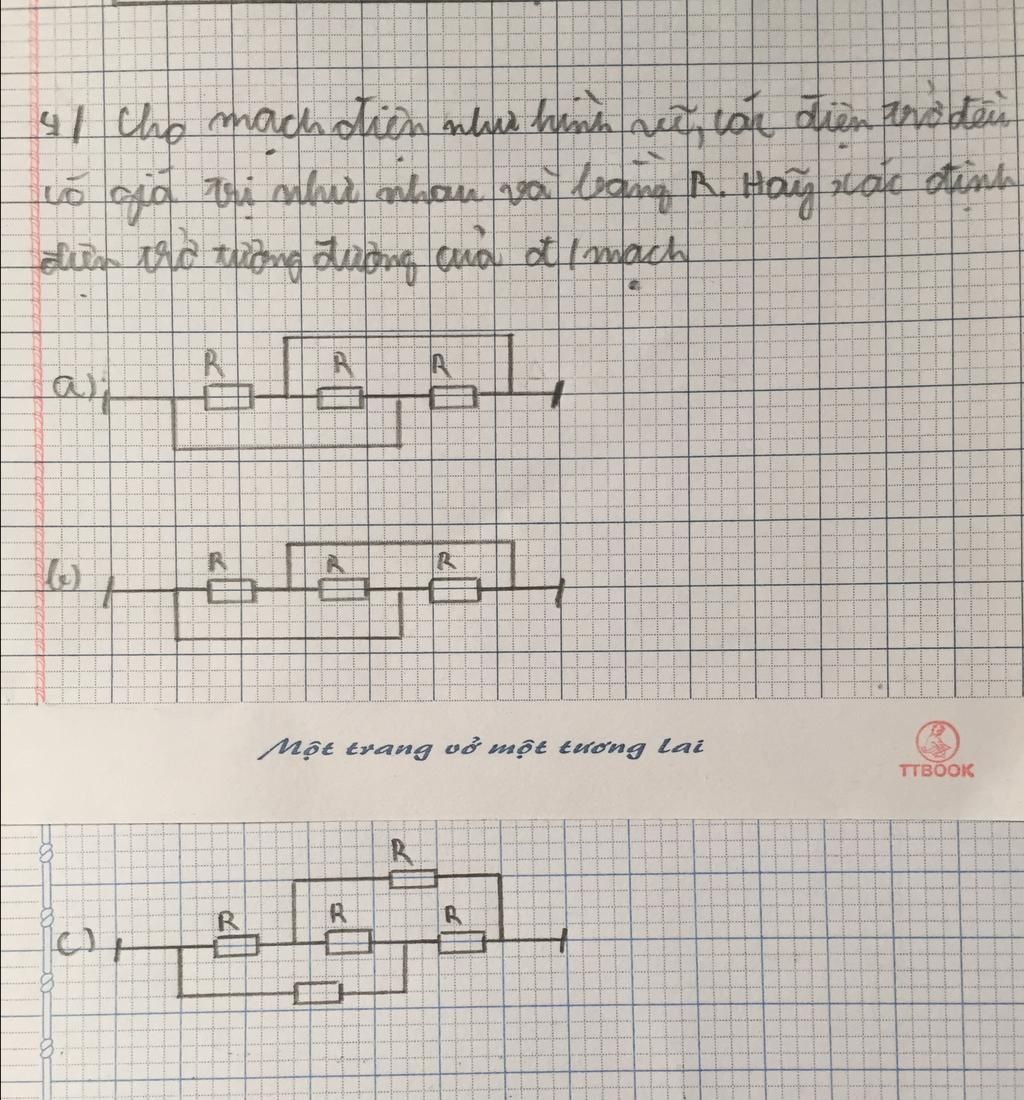 4/ Cho mạch điện như hình vẽ, các điện trở đều
có giá trị như nhau và bằng R. Hãy xác định
điện trở tương đương của đ/mạch
R R R
a)
R R R
b)
Một trang vở một tương lai
TTBOOK
R
R R R
c)